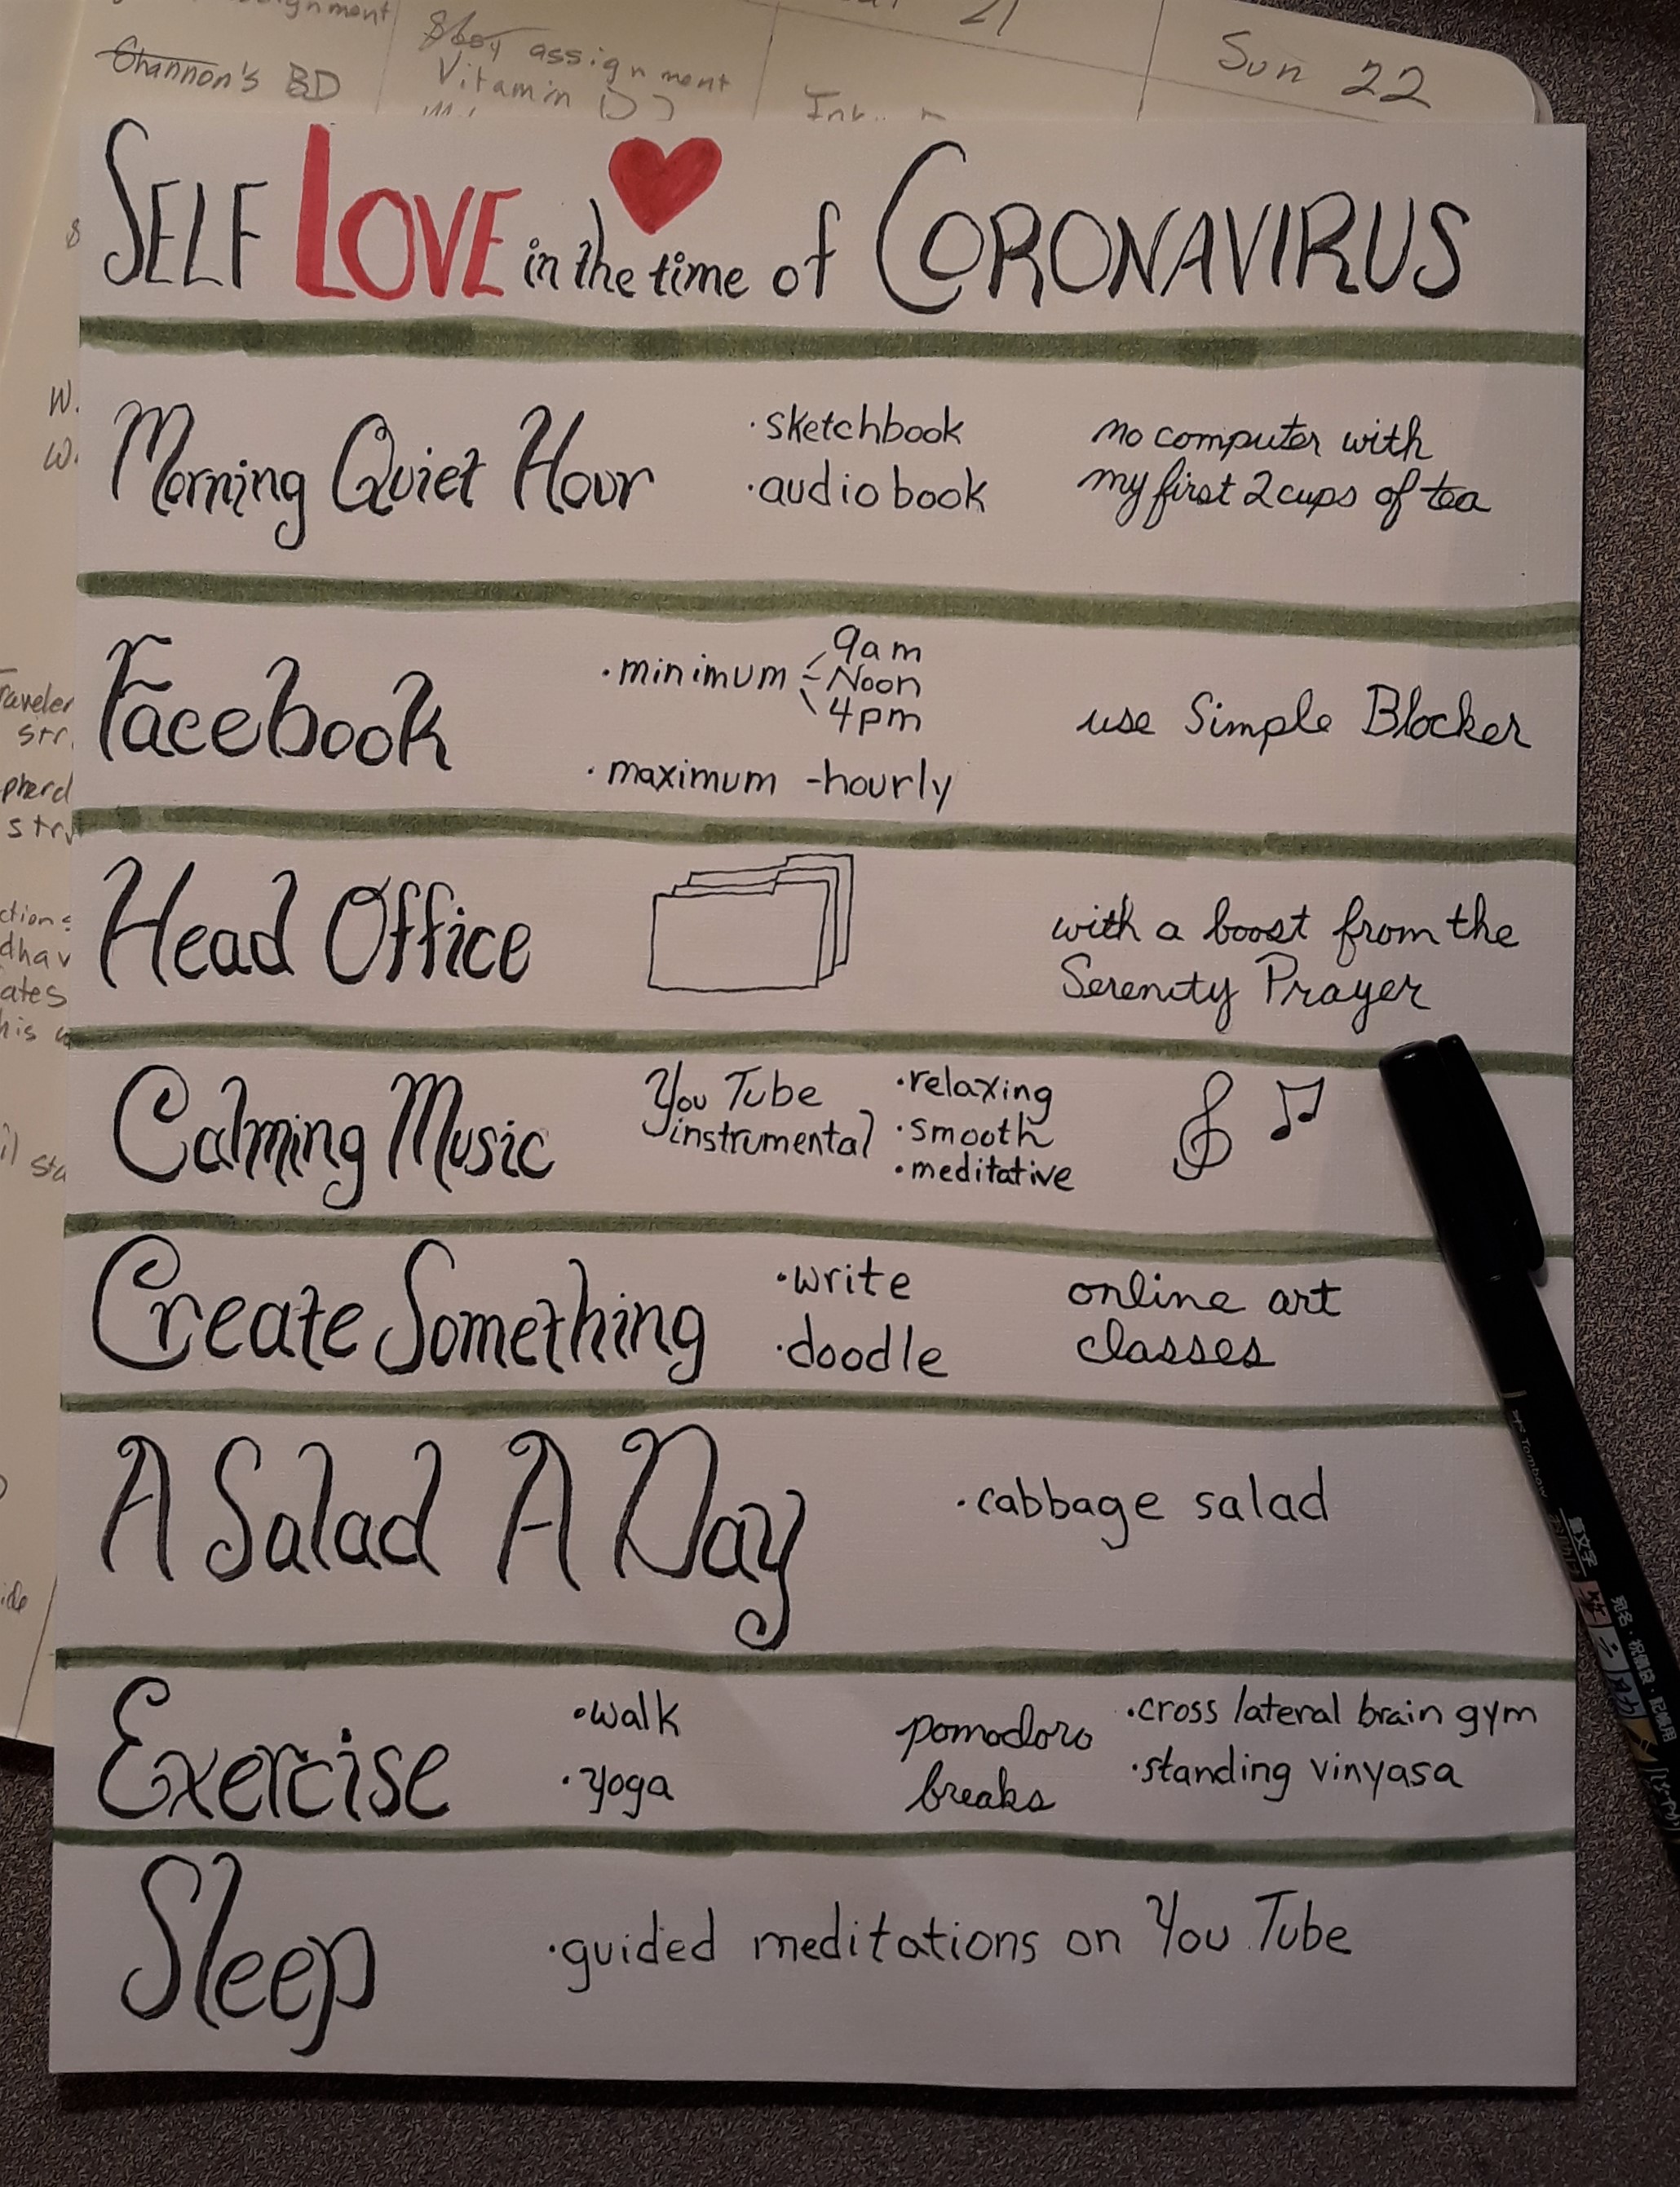 assignment
Shannon's BD
assignment
Vitamin D
21
Sun 22
SELF LOVE in the time of CORONAVIRUS
Morning Quiet Hour
·sketchbook
·audiobook
no computer with
my first 2 cups of tea
Facebook
·minimum
9am
Noon
4pm
·maximum -hourly
use Simple Blocker
Head Office
with a boost from the
Serenity Prayer
Calming Music
You Tube
instrumental
·relaxing
·smooth
·meditative
Create Something
·write
·doodle
online art
classes
A Salad A Day
·cabbage salad
Exercise
·walk
·yoga
pomodoro
breaks
·cross lateral brain gym
·standing vinyasa
Sleep
·guided meditations on You Tube
Tombow
筆文字